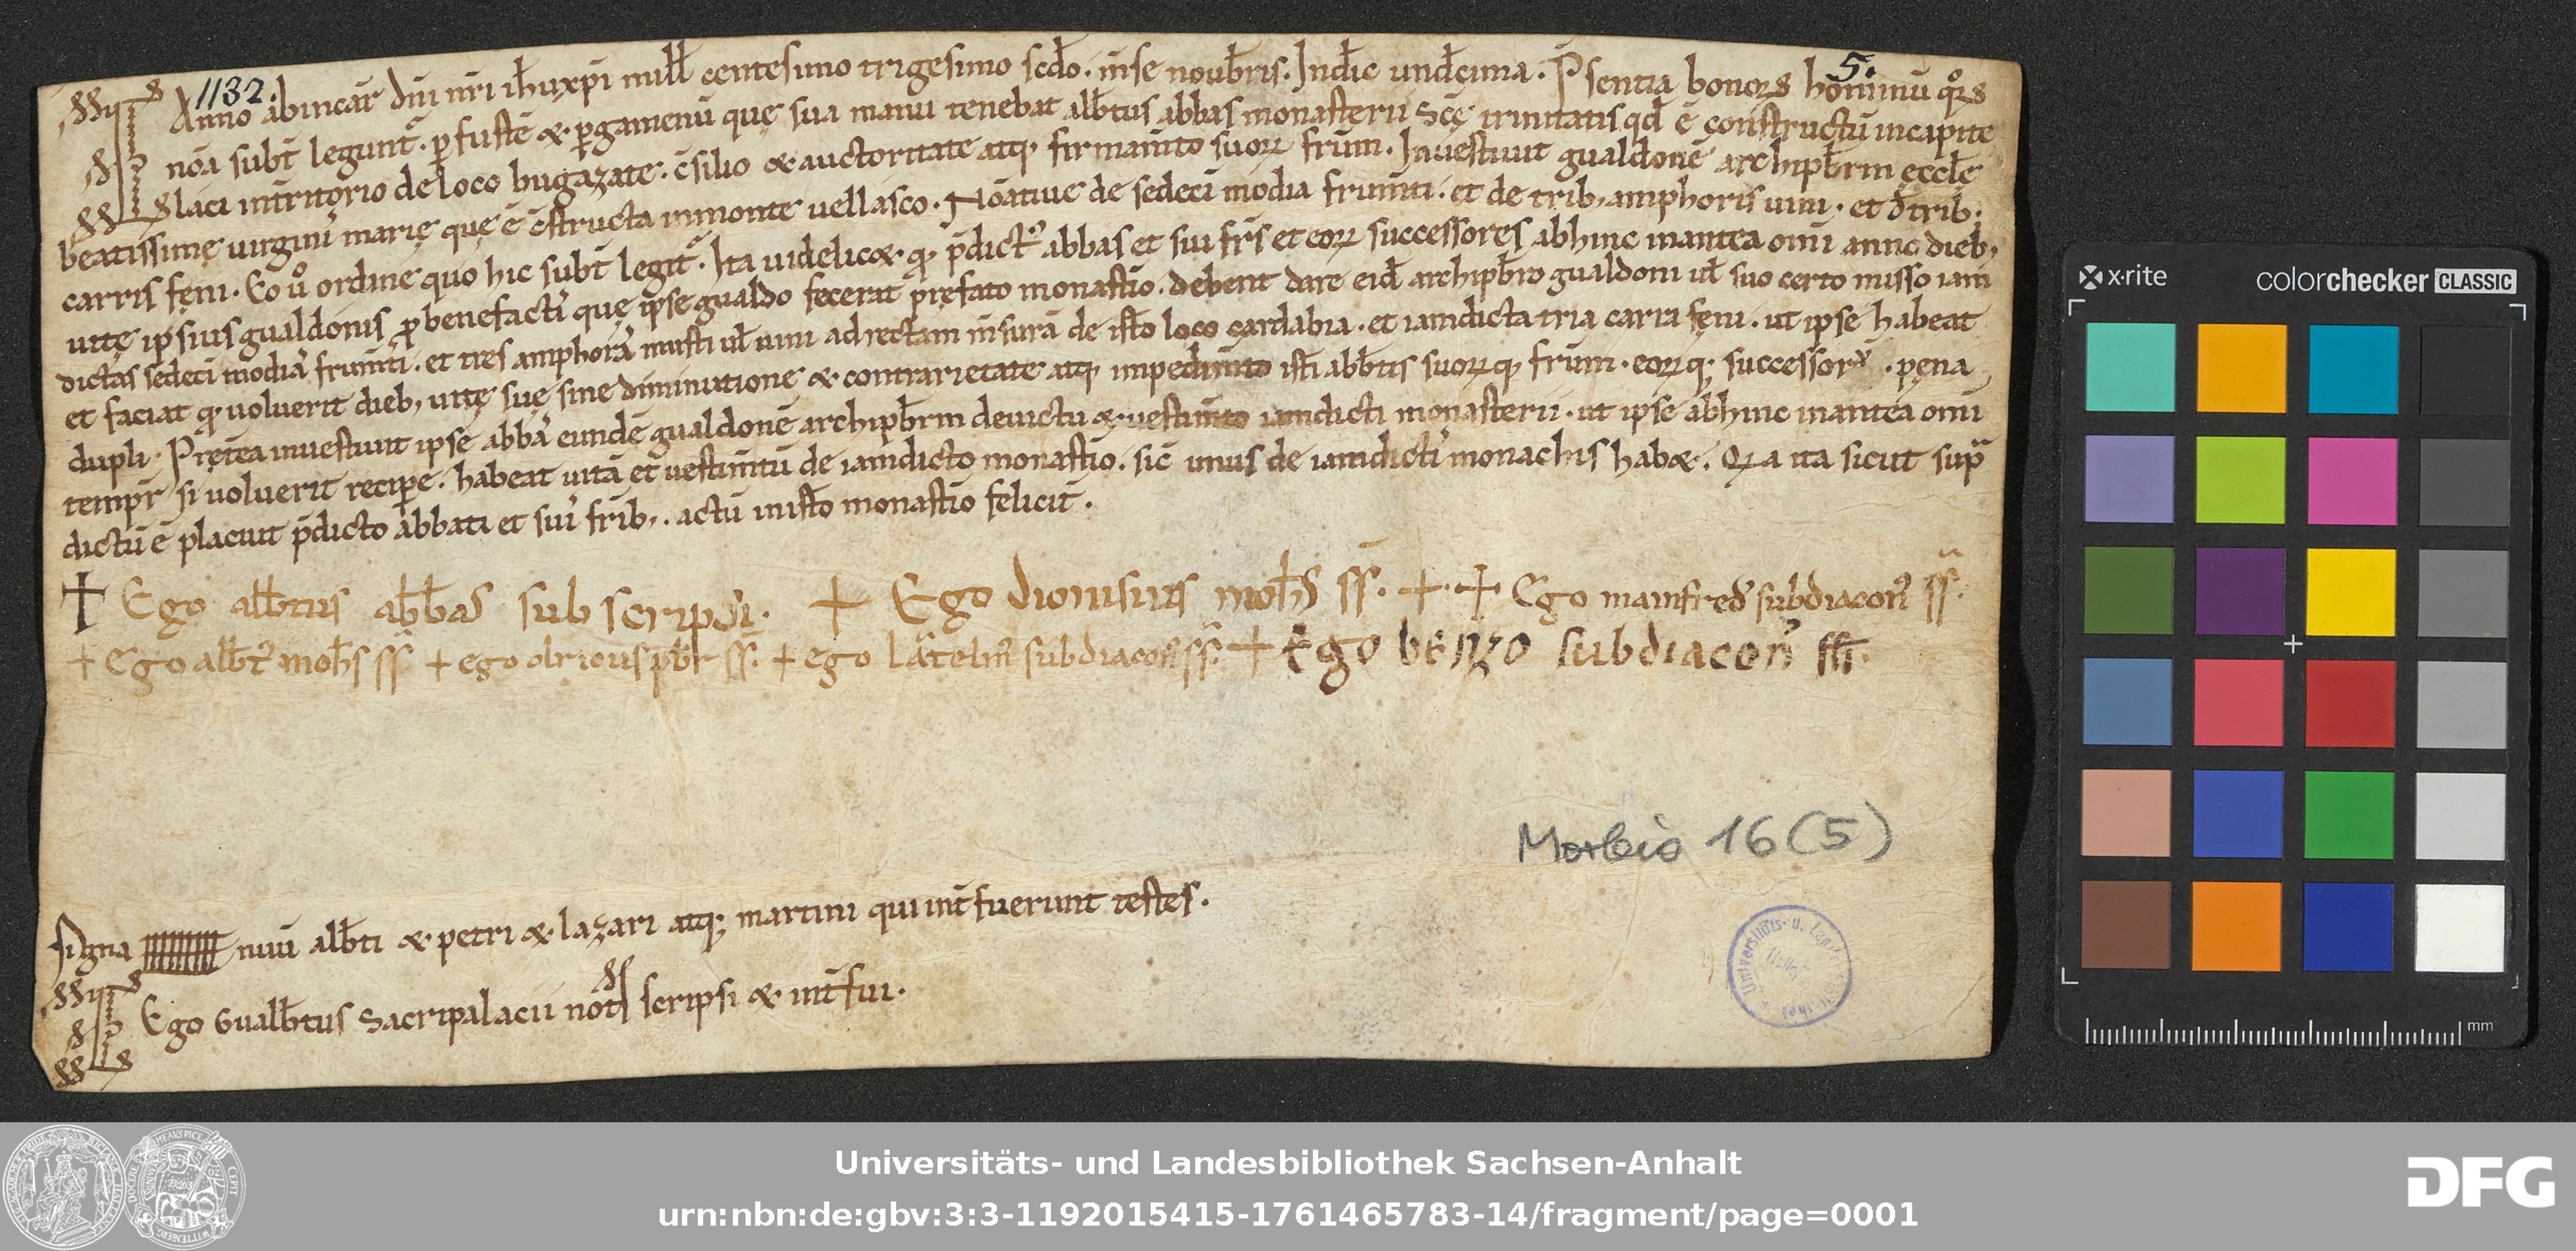 1132.
5.
Anno abincar̄ dn̄i nr̄i ih̄uxp̄i mill̄ centesimo trigesimo scd̄o. m̄se noub̄ris. Ind̄ic und̄cima. P̄sentia bonoꝝ hominū qꝛ̊ꝝ
noā subt̄ legunt̄. ꝑ fustē & ꝑgamenū quę sua manu tenebat alb̄tus abbas monasterii Scę̄ trinitatis qd̄ ē constructū incapite
laci intr̄ritorio de loco bugazate. c̄silio & auctoritate atq; firmam̄to suoꝝ fr̄um. Inuestiuit gualdonē archipb̄rm ęccl̄ę
beatissimę uirgini᾿ marię quę ē c̄structa inmonte uellasco. Noatiue de sedeci modia frum̄ti. et de trib; amphoris uini. et d̄trib;
carris fęni. Eo ů ordine quo hic subt̄ legit̄. Ita uidelic& q; p̄dict᾿ abbas et sui fr̄s et eoꝝ successores abhinc inantea omī anno dieb;
uitę ipsius gualdonis ꝓ benefacti᾿ quę ipse gualdo fecerit pręfato monast̄io. debent dare eid̄ archipb̄ro gualdoni ul̄ suo certo misso iam
dictas sedeci modia᾿ frum̄ti. et tres amphora᾿ musti ul̄ uini ad rectam m̄surā de isto loco cardabia. et iamdicta tria carra fęni. ut ipse habeat
et faciat q; uoluerit dieb; uitę suę sine diminutione & contrarietate atq; impedim̄to isti abb̄tis suoꝝq; fr̄um. eoꝝq; successoꝝ. pęna
dupli. Pręt̄ea inuestiuit ipse abba᾿ eundē gualdonē archipb̄rm deuictu & uestim̄to iamdicti monasterii. ut ipse abhinc inantea omī
tempr̄ si uoluerit recipe. habeat uitā et uestim̄tū de iamdicto monast̄io. sic̄ unus de iamdicti᾿ monachis hab&. Qꝛ a ita sicut supᵃ
dictū ē placuit p̄dicto abbati et sui᾿ fr̄ib;. actū inisto monast̄io felicit̄.
+ Ego alb̄tus abb̄as subscripsi. + Ego dionisius moh̄s ss̄. + + Ego mainfred᾿ subdiacon᾿ ss̄.
+ Ego alb̄t᾿ moh̄s ss̄ + ego pb̄r ss̄. + ego subdiacon᾿ ss̄. + Ego benzo subdiacon᾿ ss̄.
Morbio 16 (5)
Signa nuū alb̄ti & petri & lazari atq; martini qui int̄fuerunt testes.
Ego Gualb̄tus Sacripalacii not̄ scripsi & int̄fui.
x·rite
colorchecker CLASSIC
mm
Universitäts- und Landesbibliothek Sachsen-Anhalt
urn:nbn:de:gbv:3:3-1192015415-1761465783-14/fragment/page=0001
DFG